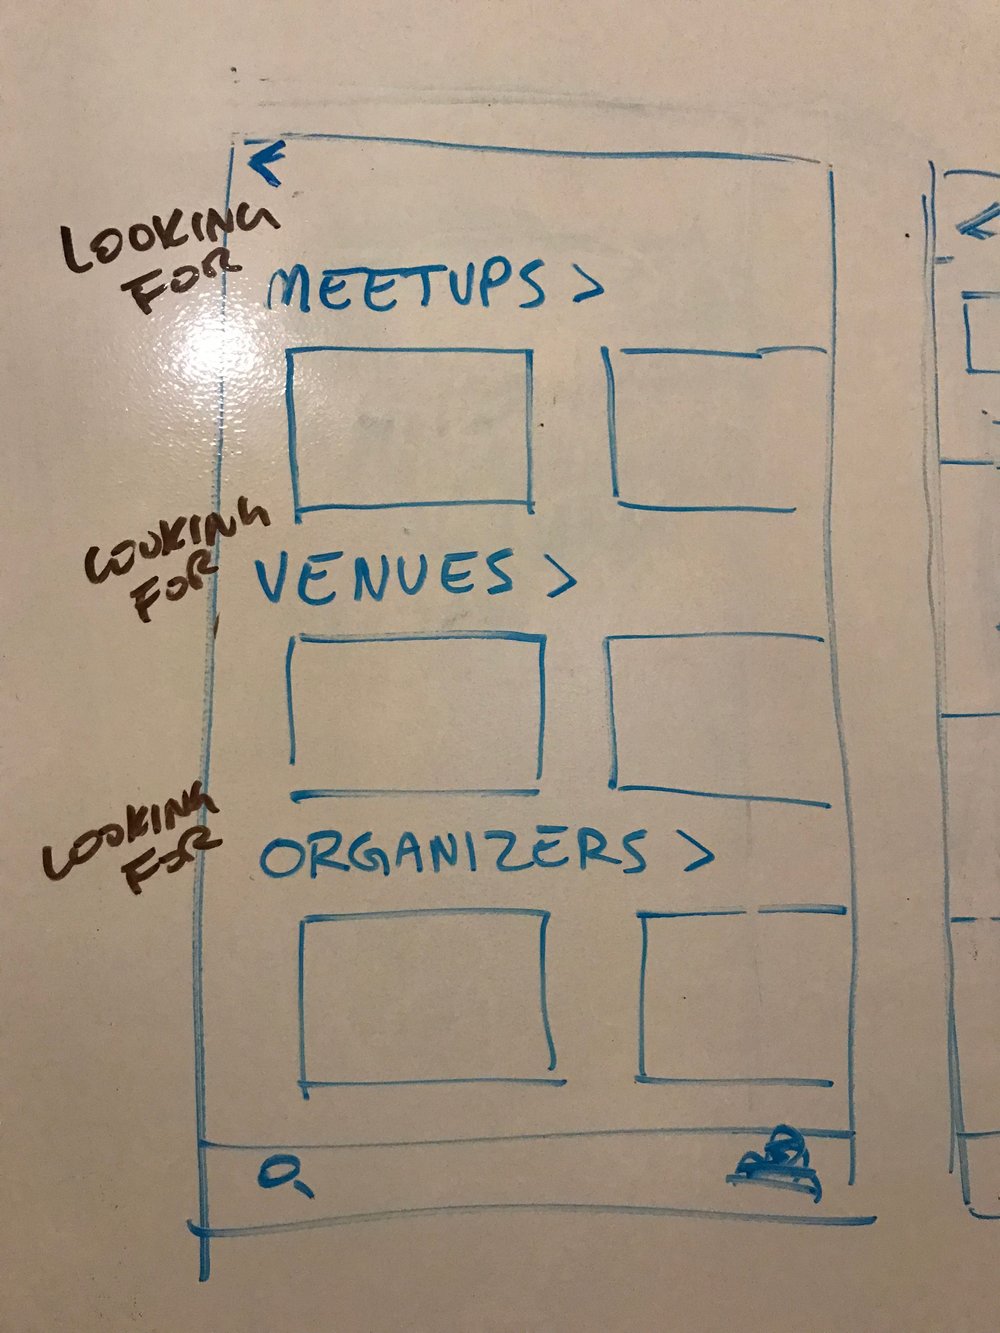 LOOKING
FOR
MEETUPS >
LOOKING
FOR
VENUES >
LOOKING
FOR
ORGANIZERS >